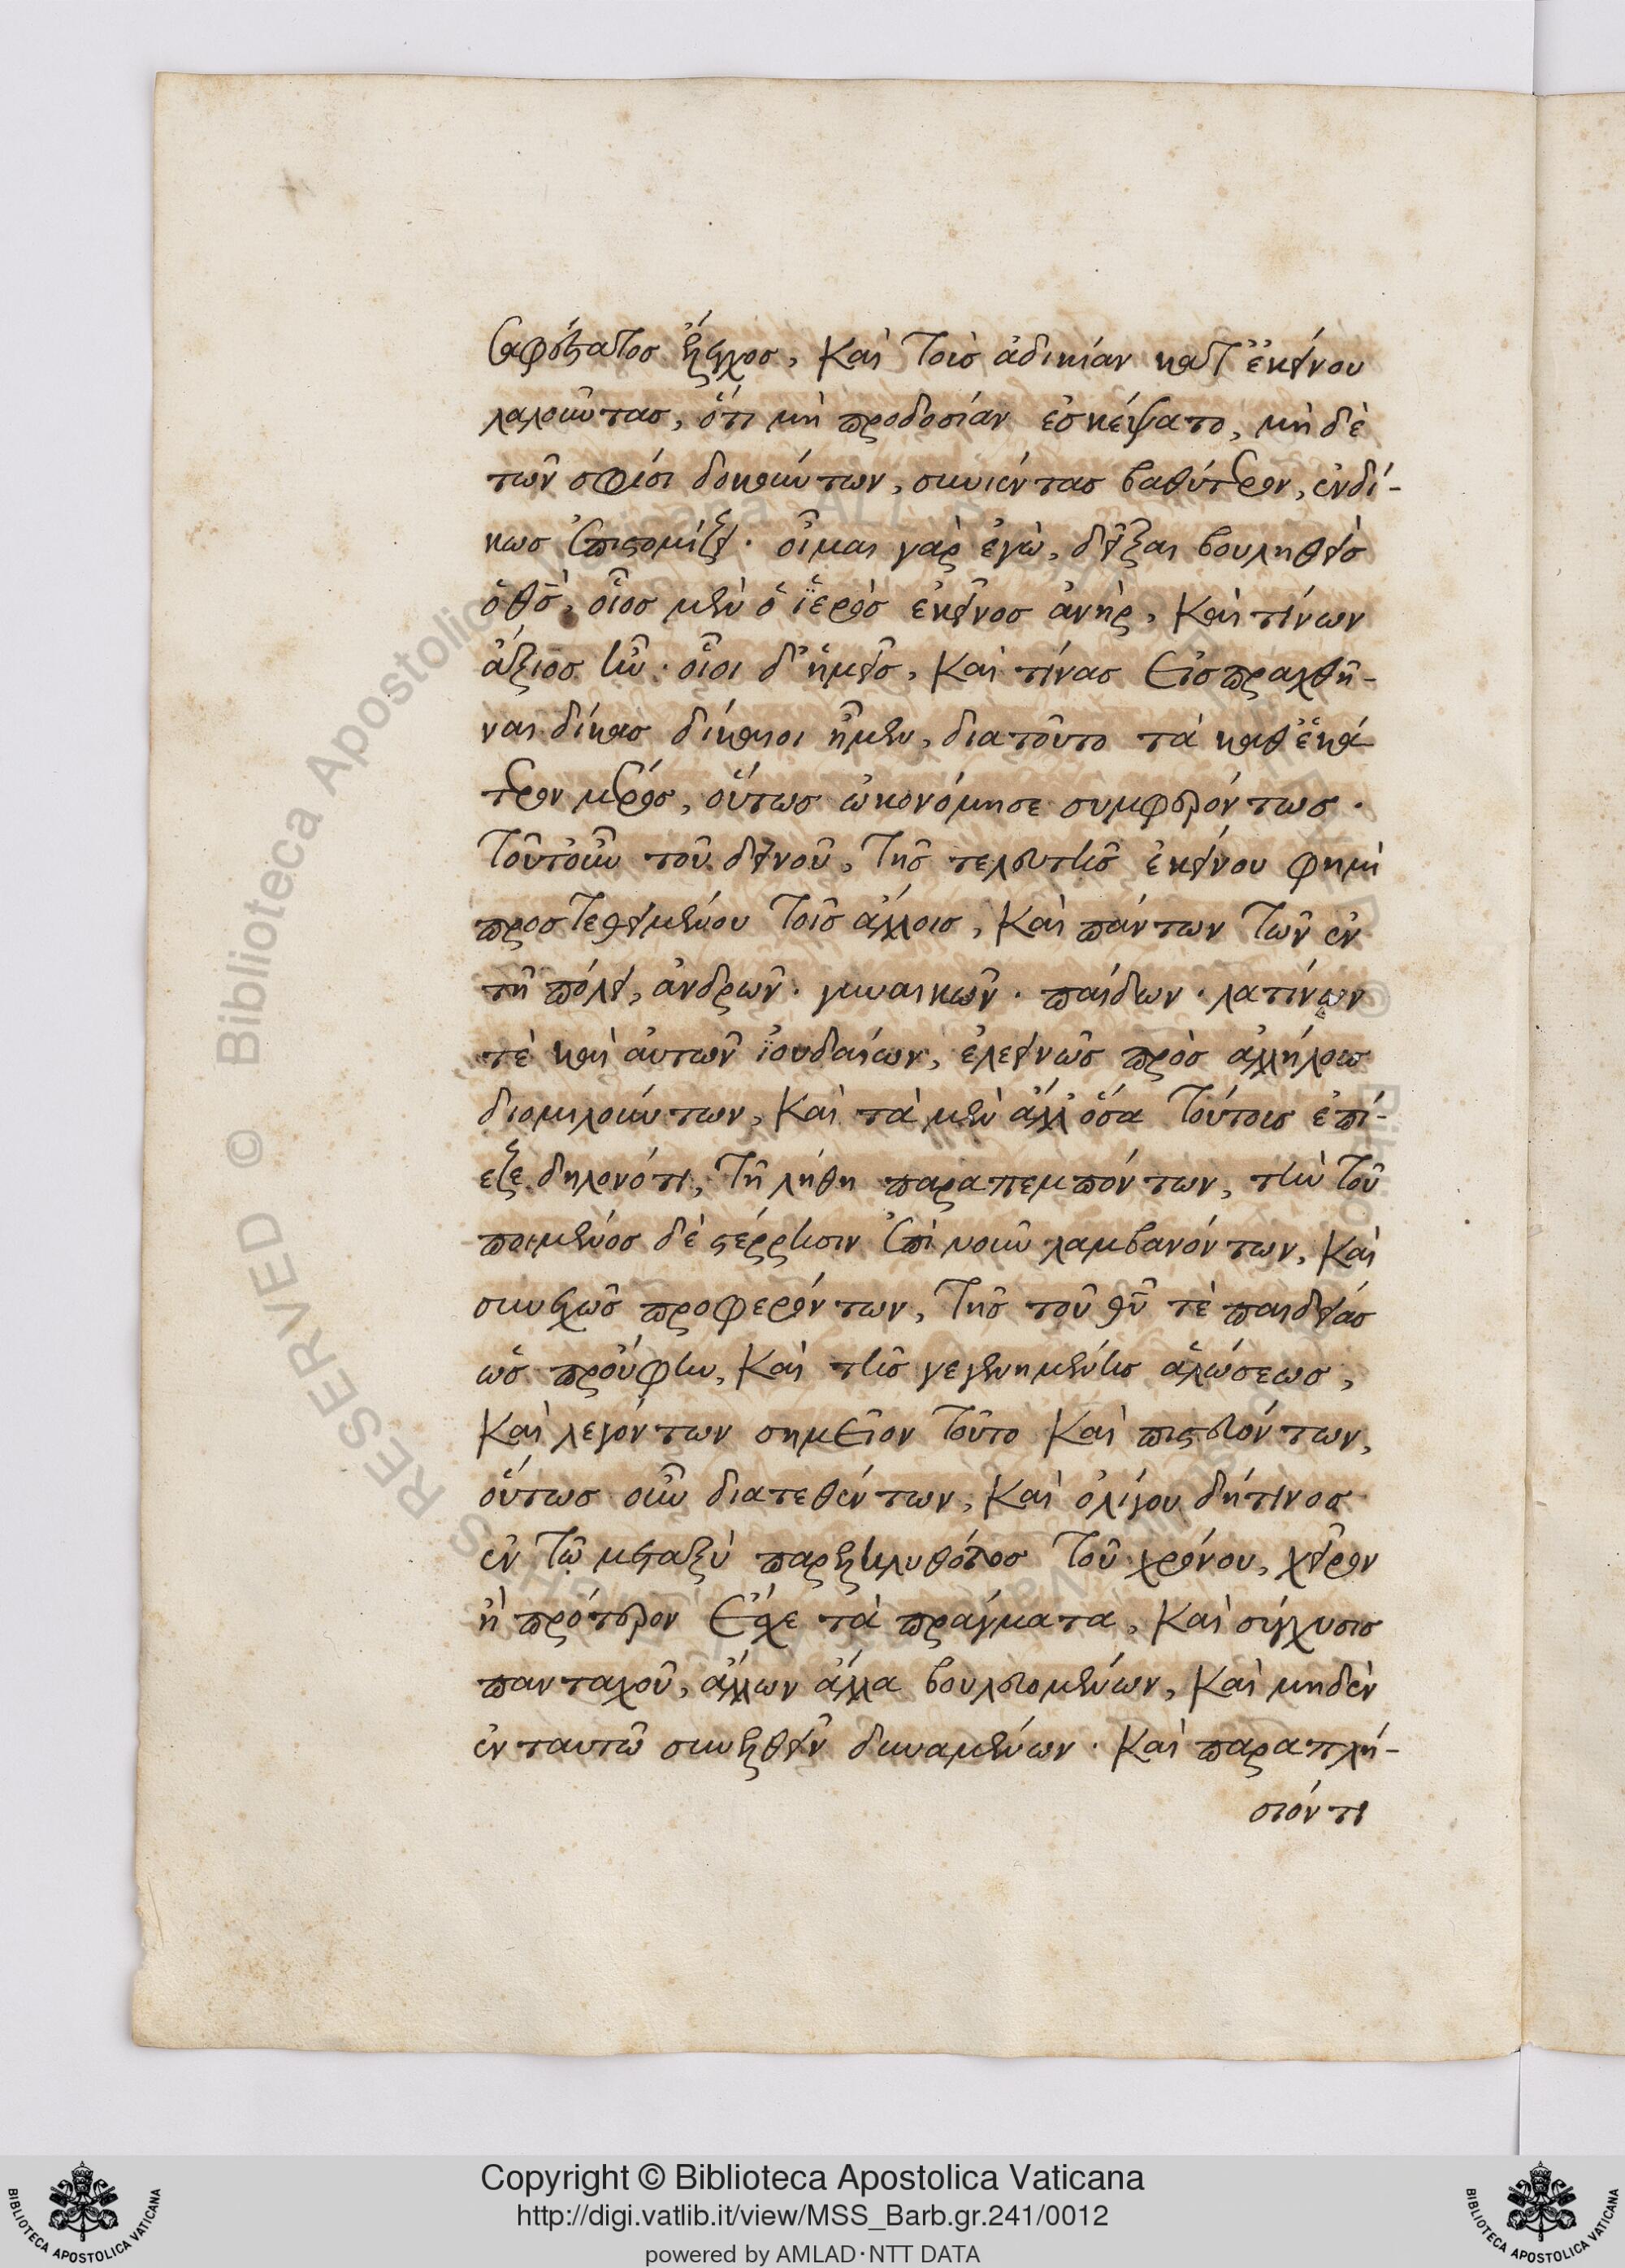 σαφέστατος ἔλεγχος, καὶ τοὺς ἀδικίαν κατ' ἐκείνου
λαλοῦντας, ὅτι μὴ προδοσίαν ἐσκέψατο, μὴ δὲ
τῶν σφίσι δοκούντων, συνιέντας βαθύτερον, ἐνδί-
κως ἐπιστομίζει. οἶμαι γὰρ ἐγὼ, δεῖξαι βουληθεὶς
ὁ θς, οἷος μὲν ὁ ϊερὸς ἐκεῖνος ἀνὴρ, καὶ τίνων
ἄξιος ἦν. οἷοι δ' ἡμεῖς, καὶ τίνας εἰσπραχθῆ-
ναι δίκας δίκαιοι ἦμεν, διατοῦτο τὰ καθ' ἑκά
τερον μέρος, οὕτως ὠκονόμησε συμφερόντως.
τούτου οὖν τοῦ δεινοῦ, τῆς τελευτῆς ἐκείνου φημὶ
προστεθειμένου τοῖς ἄλλοις, καὶ πάντων τῶν ἐν
τῆ πόλει, ἀνδρῶν. γυναικῶν. παίδων. λατίνων
τὲ καὶ αὐτῶν ϊουδαίων, ἐλεεινῶς πρὸς ἀλλήλους
διομιλούντων, καὶ τὰ μὲν ἄλλ' ὅσα τούτοις ἐπί-
εζε δηλονότι, τῆ λήθη παραπεμπόντων, τὴν τοῦ
ποιμένος δὲ στέρησιν ἐπὶ νοῦν λαμβανόντων, καὶ
συνεχῶς προφερόντων, τῆς τοῦ θῦ τὲ παιδείας
ὡς προὔφην, καὶ τῆς γεγενημένης ἁλώσεως,
καὶ λεγόντων σημεῖον τοῦτο καὶ πιστευόντων,
οὕτως οὖν διατεθέντων, καὶ ὀλίγου δήτινος
ἐν τῶ μεταξὺ παρεξεληλυθότος τοῦ χρόνου, χεῖρον
ἢ πρότερον εἶχε τὰ πράγματα, καὶ σύγχυσις
πανταχοῦ, ἄλλων ἄλλα βουλευομένων, καὶ μηδὲν
ἐν ταυτῶ συνελθεῖν δυναμένων. καὶ παραπλή-
σιόν τι
Copyright © Biblioteca Apostolica Vaticana
http://digi.vatlib.it/view/MSS_Barb.gr.241/0012
powered by AMLAD·NTT DATA